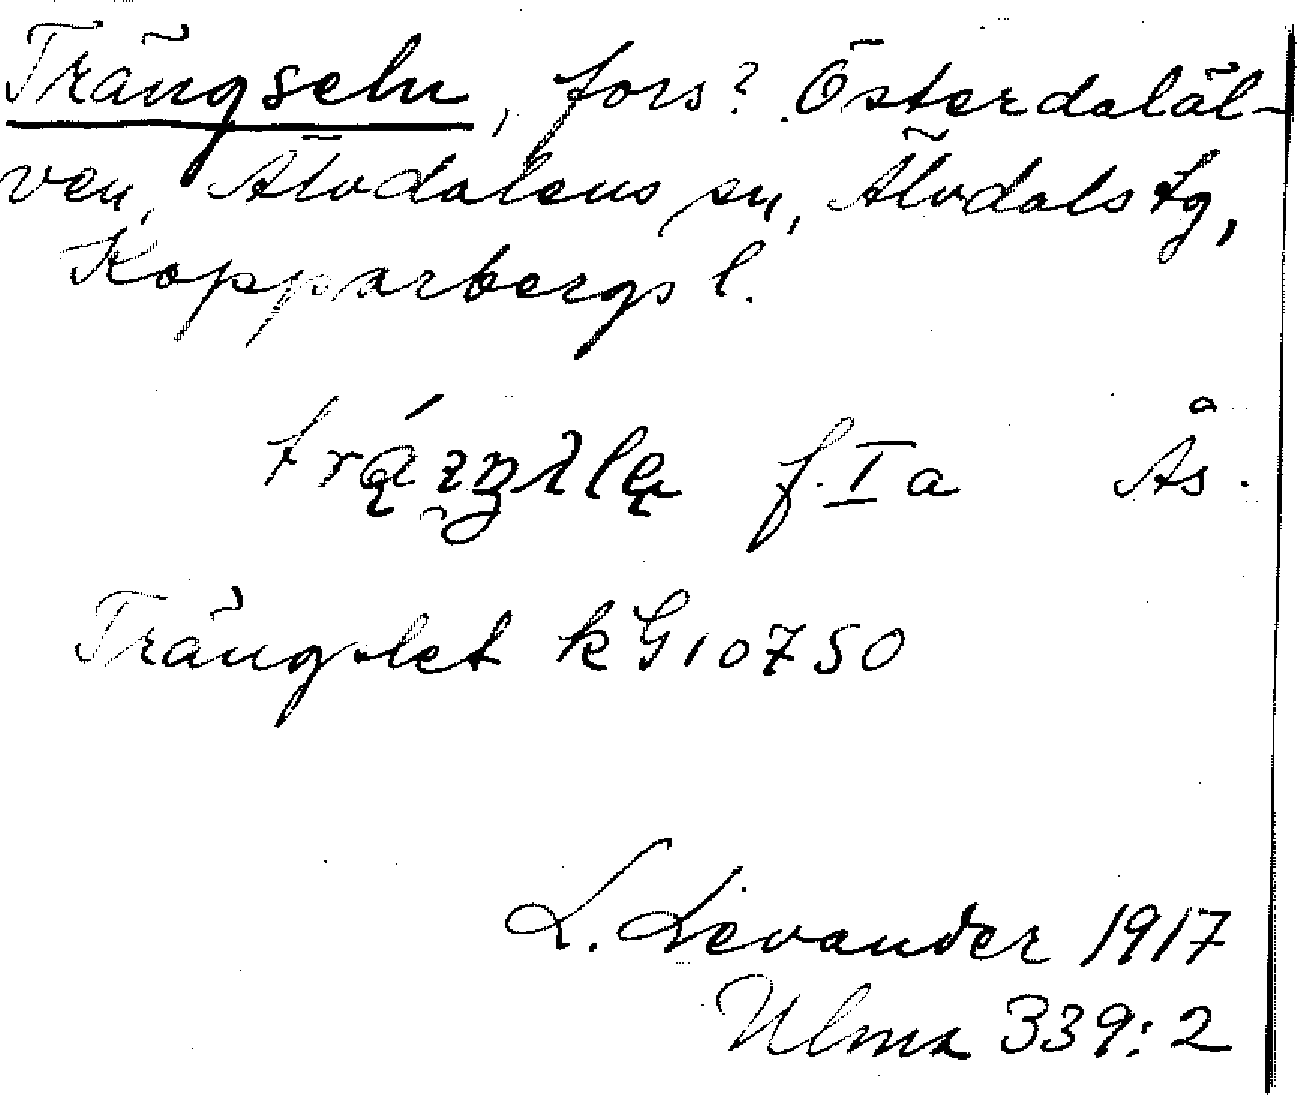 Trängseln, fors? Österdaläl-
ven, Älvdalens sn, Älvdals tg,
Kopparbergs l.
f. I a Ås.
Tränglet kG 10750
L. Levander 1917
Ulma 339:2